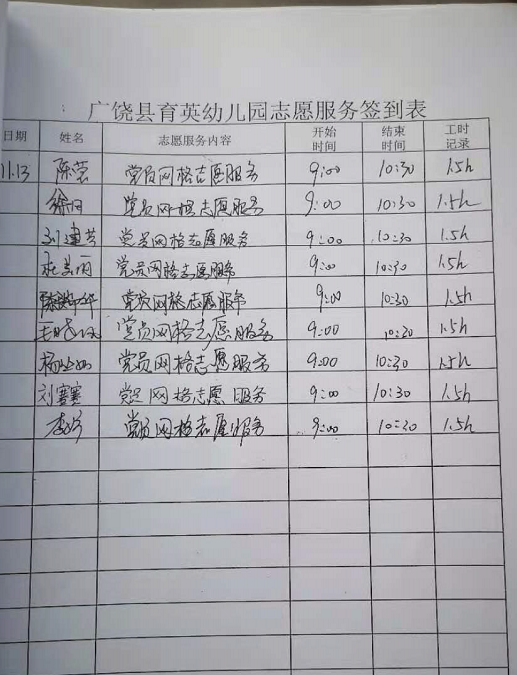 广饶县育英幼儿园志愿服务签到表
日期 姓名 志愿服务内容 开始时间 结束时间 工时记录
11.13 陈荣 党员网格志愿服务 9:00 10:30 1.5h
党员网格志愿服务 9:00 10:30 1.5h
刘建芸 党员网格志愿服务 9:00 10:30 1.5h
党员网格志愿服务 9:00 10:30 1.5h
党员网格志愿服务 9:00 10:30 1.5h
党员网格志愿服务 9:00 10:30 1.5h
党员网格志愿服务 9:00 10:30 1.5h
刘赛赛 党员网格志愿服务 9:00 10:30 1.5h
党员网格志愿服务 9:00 10:30 1.5h